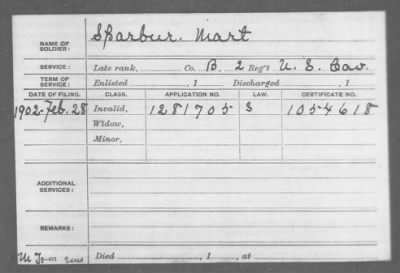 NAME OF SOLDIER: Sparbur. Mart
SERVICE: Late rank, Co. B, 2 Reg't U. S. Cav.
TERM OF SERVICE: Enlisted , 1 Discharged , 1
DATE OF FILING. CLASS. APPLICATION NO. LAW. CERTIFICATE NO.
1902-Feb. 28 Invalid, 1281705 S 1054618
Widow,
Minor,
ADDITIONAL SERVICES:
REMARKS:
Died , 1 , at